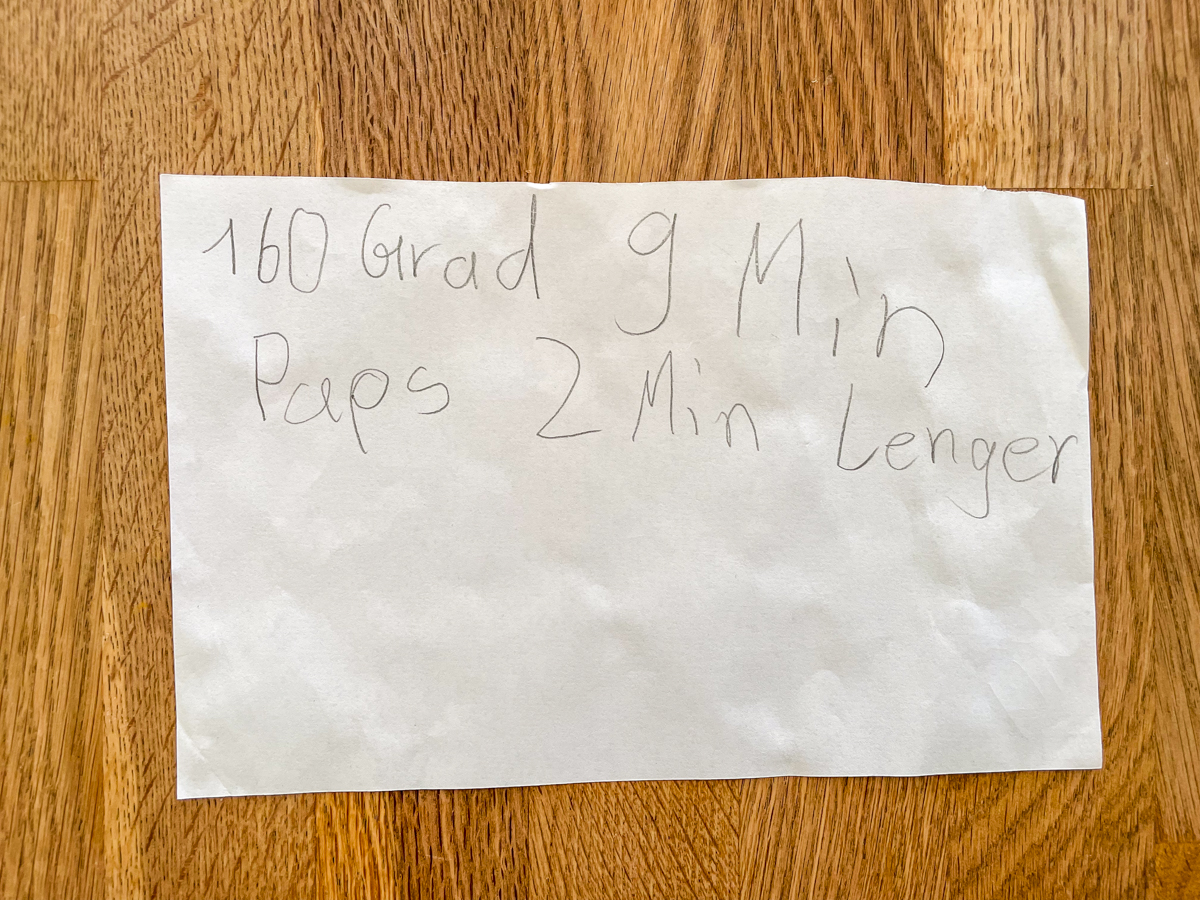 160 Grad 9 Min
Paps 2 Min Lenger